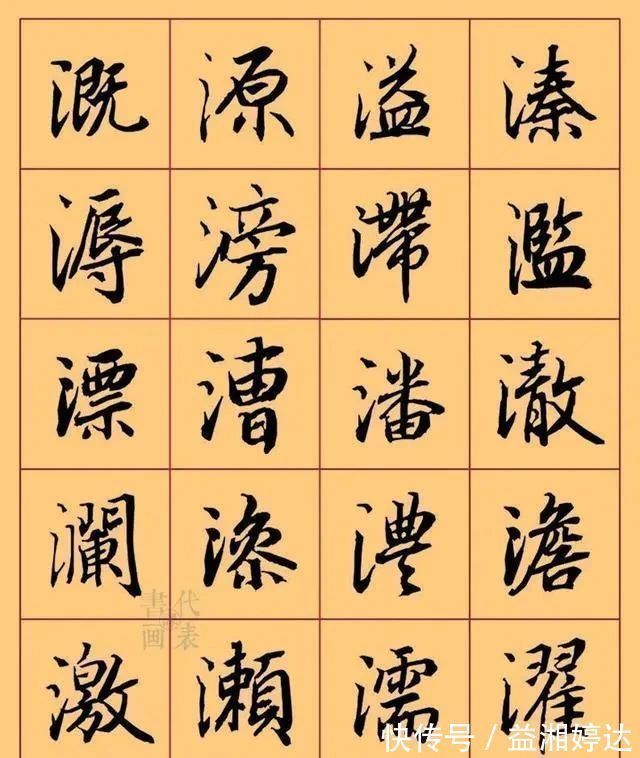 溉源溢溱
溽滂滯濫
漂漕潘澈
瀾漆澧澹
激瀨濡濯
代表
書画
快传号 / 益湘婷达